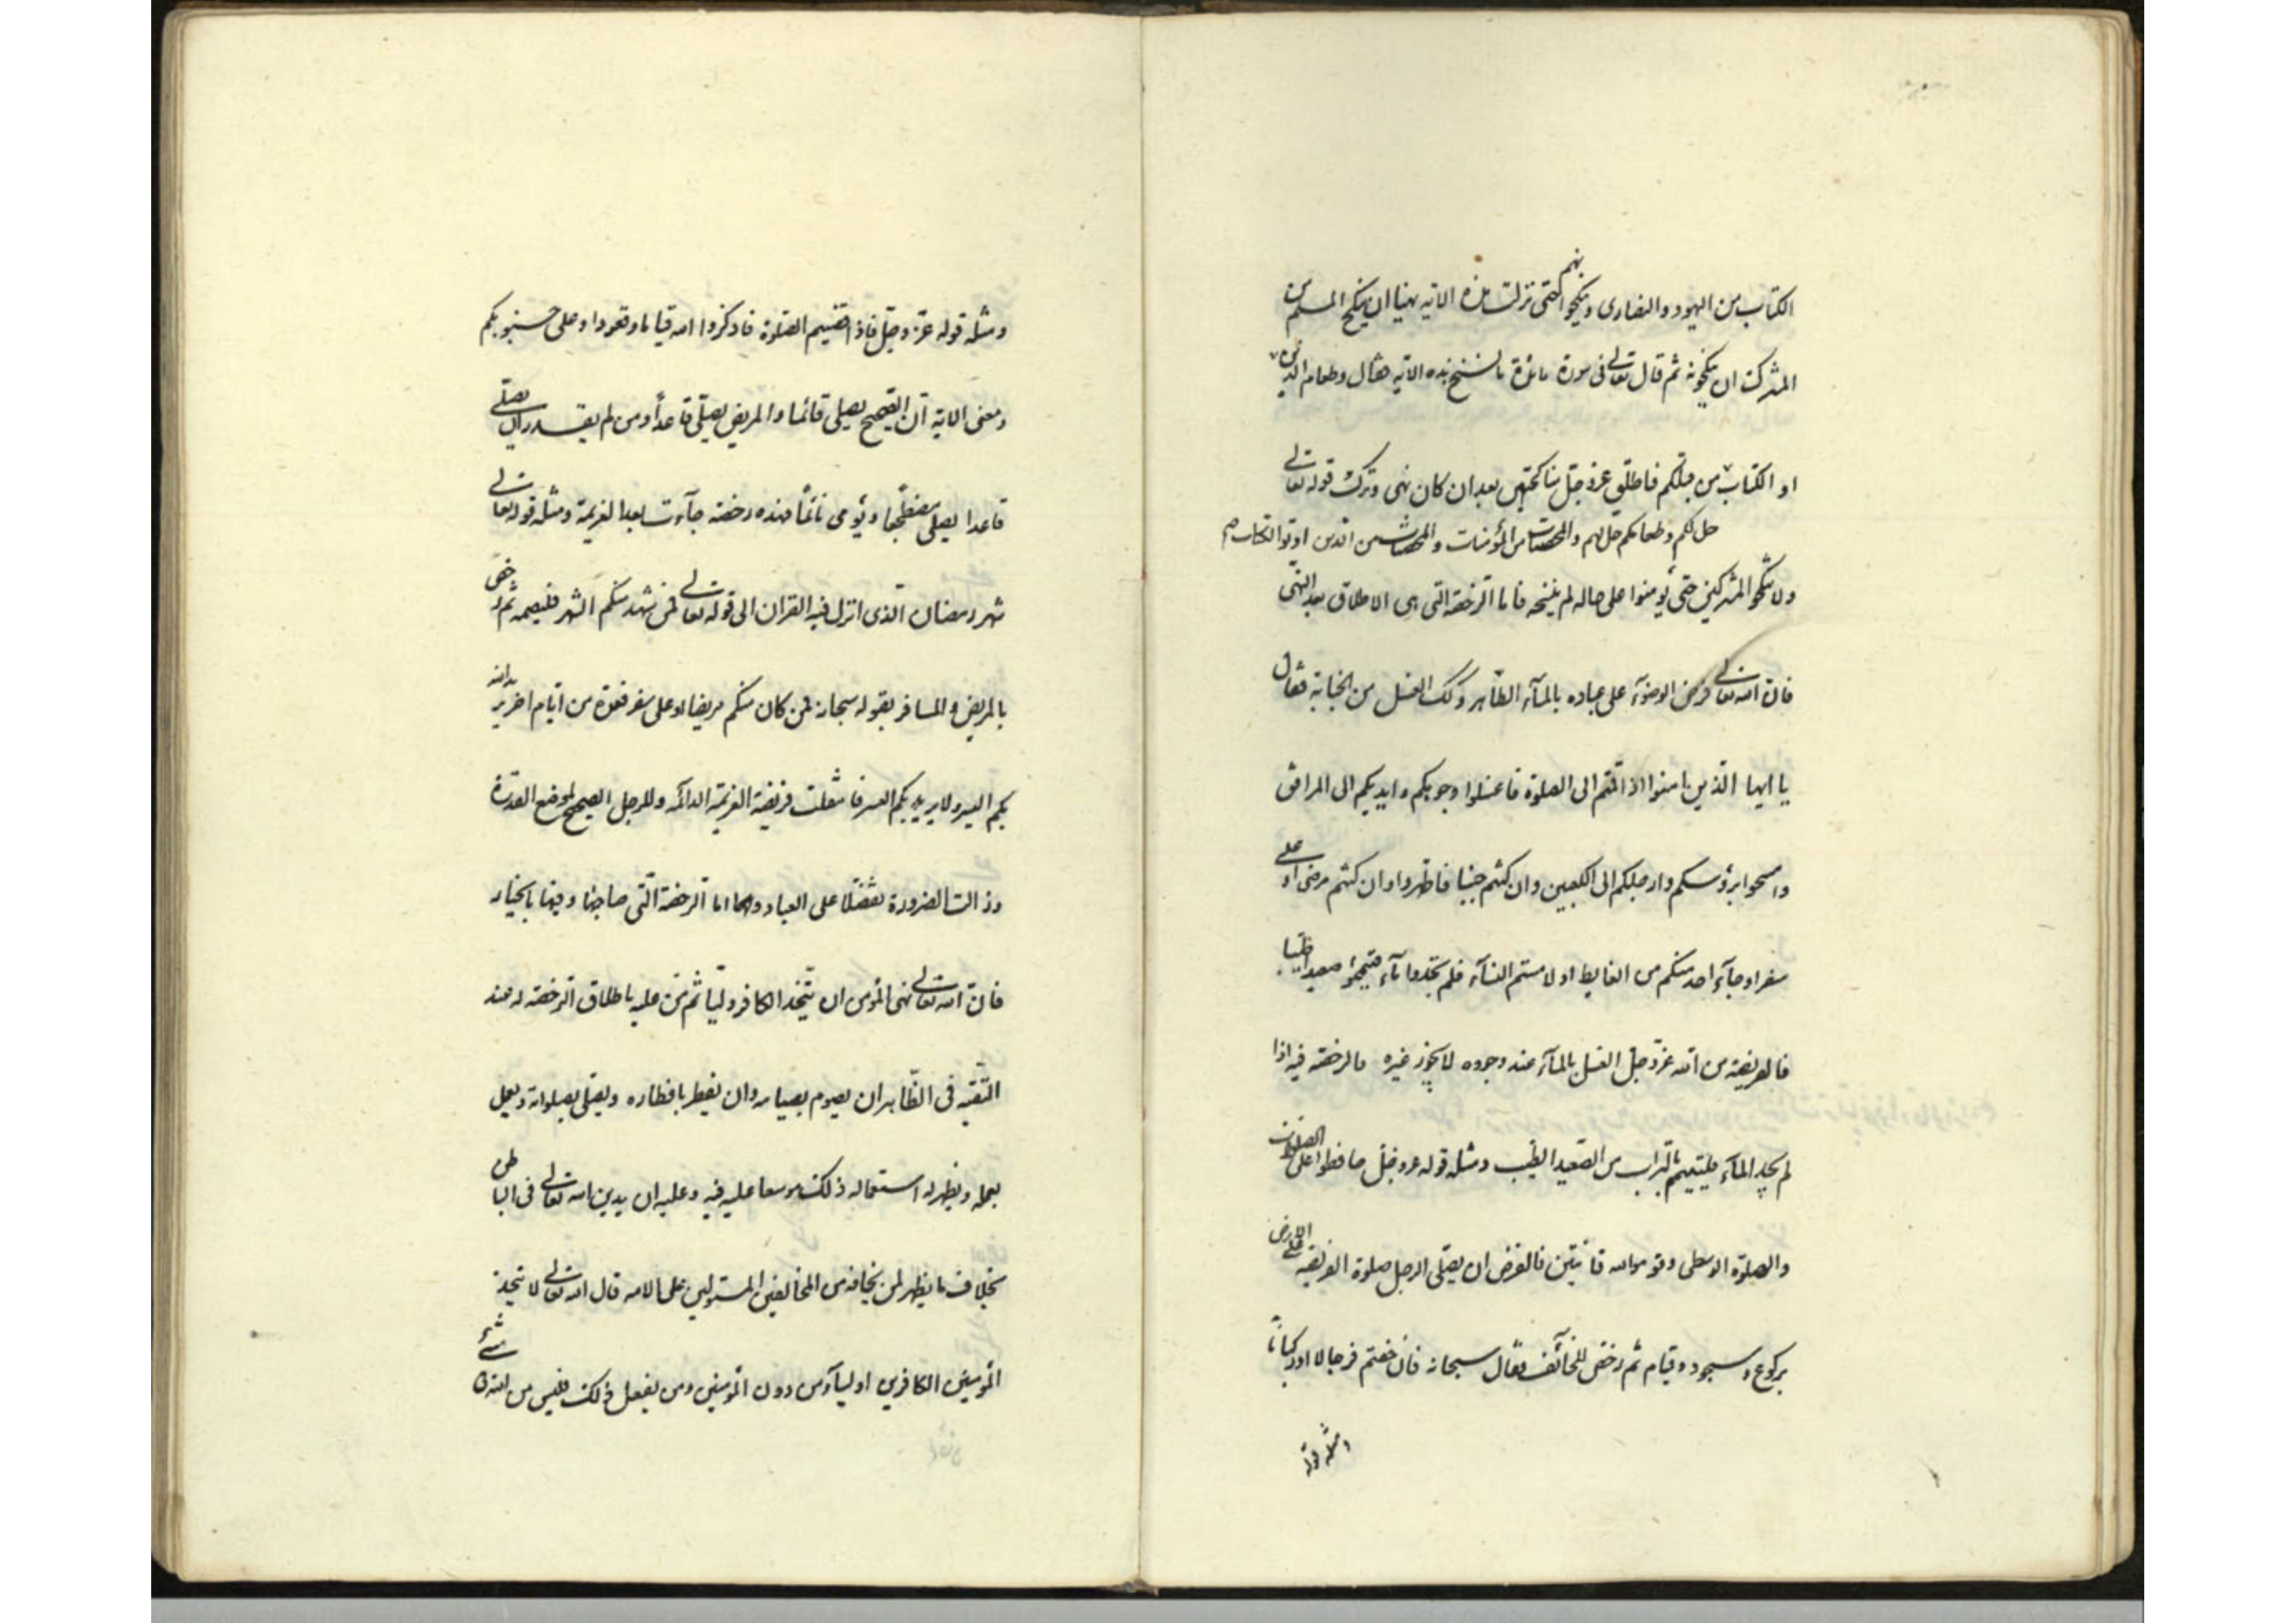 الكتاب من اليهود والنصارى وينكحوانهم حتى نزلت هذه الاية نهيا ان ينكح المسلم من
المشركة او ينكحونه ثم قال تعالى فى سورة مائدة ما نسخ هذه الاية فقال وطعام الذين
اوتوا الكتاب من قبلكم فاطلق عز وجل مناكحتهن بعد ان كان نهى وترك قوله تعالى
حل لكم وطعامكم حل لهم والمحصنات من المؤمنات والمحصنات من الذين اوتوا الكتاب صح
ولا تنكحوا المشركين حتى يؤمنوا على حاله لم ينسخه فاما الرخصة التى هى الاطلاق بعد النهى
فان الله تعالى فرض الوضوء على عباده بالماء الطاهر وكذلك الغسل من الجنابة فقال
يا ايها الذين امنوا اذا قمتم الى الصلوة فاغسلوا وجوهكم وايديكم الى المرافق
وامسحوا برؤسكم وارجلكم الى الكعبين وان كنتم جنبا فاطهروا وان كنتم مرضى او على
سفر او جاء احد منكم من الغايط او لامستم النساء فلم تجدوا ماء فتيمموا صعيدا طيبا
فالفريضة من الله عز وجل الغسل بالماء عند وجوده لا يجوز غيره والرخصة فيه اذا
لم يجد الماء فليتيمم بالتراب من الصعيد الطيب ومثله قوله عز وجل حافظوا على الصلوات
والصلوة الوسطى وقوموا لله قانتين فالفرض ان يصلى الرجل صلوة الفريضة على الارض
بركوع وسجود وقيام ثم رخص للخائف فقال سبحانه فان خفتم فرجالا او ركبانا
ومثله قوله
ومثله قوله عز وجل فاذا قضيتم الصلوة فاذكروا الله قياما وقعودا وعلى جنوبكم
ومعنى الاية ان الصحيح يصلى قائما والمريض يصلى قاعدا ومن لم يقدر ان يصلى
قاعدا يصلى مضطجعا ويومى نائما فهذه رخصة جاءت بعد العزيمة ومثله قوله تعالى
شهر رمضان الذى انزل فيه القران الى قوله تعالى فمن شهد منكم الشهر فليصمه ثم رخص
بالمريض والمسافر بقوله سبحانه فمن كان منكم مريضا او على سفر فعدة من ايام اخر يريد الله
بكم اليسر ولا يريد بكم العسر فانتقلت فريضة العزيمة الدائمة وللرجل الصحيح لموضع القدرة
وزالت الضرورة تفضلا على العباد واما الرخصة التى صاحبها فيها بالخيار
فان الله تعالى نهى المؤمن ان يتخذ الكافر وليا ثم من عليه باطلاق الرخصة له عند
التقية فى الظاهر ان يصوم بصيامه وان يفطر بافطاره ويصلى بصلواته ويعمل
بعمله ويظهر له استعماله ذلك موسعا عليه فيه وعليه ان يدين الله تعالى فى الباطن
بخلاف ما يظهر لمن يخافه من المخالفين المستولين على الامه قال الله تعالى لا يتخذ
المؤمنين الكافرين اولياء من دون المؤمنين ومن يفعل ذلك فليس من الله فى شئ